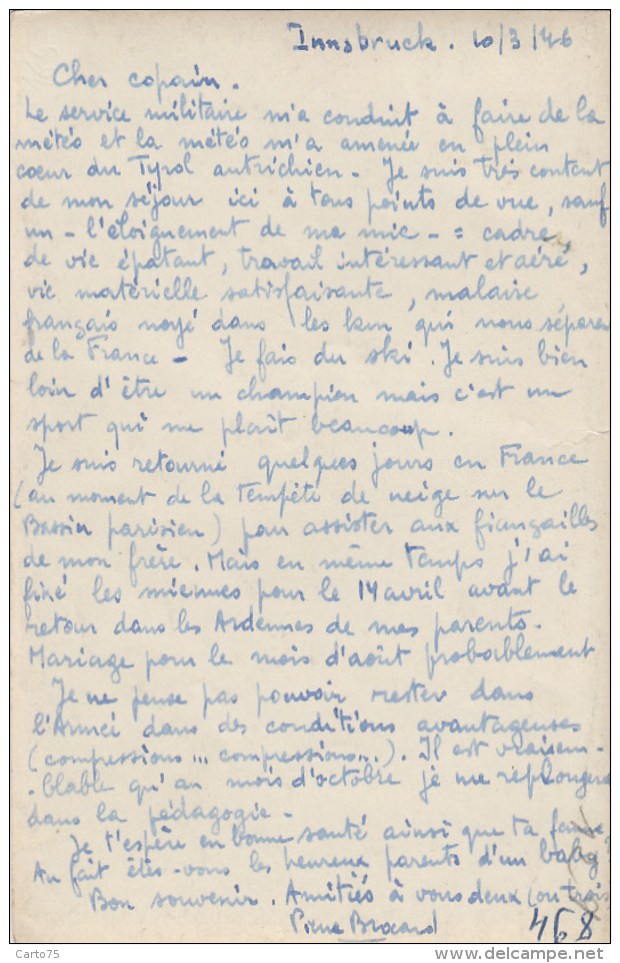 Innsbruck. 10/3/46
Cher copain.
Le service militaire m'a conduit à faire de la
météo et la météo m'a amenée en plein
coeur du Tyrol autrichien - Je suis très content
de mon séjour ici à tous points de vue, sauf
un - l'éloignement de ma mie - = cadre
de vie épatant, travail intéressant et aéré,
vie matérielle satisfaisante, malaise
français noyé dans les km qui nous séparent
de la France - Je fais du ski. Je suis bien
loin d'être un champion mais c'est un
sport qui me plaît beaucoup.
Je suis retourné quelques jours en France
(au moment de la tempête de neige sur le
Bassin parisien) pour assister aux fiançailles
de mon frère. Mais en même temps j'ai
fixé les miennes pour le 14 avril avant le
retour dans les Ardennes de mes parents.
Mariage pour le mois d'août probablement
Je ne pense pas pouvoir rester dans
l'Armée dans des conditions avantageuses
(compressions... compressions...). Il est vraisem-
-blable qu'au mois d'octobre je me replongerai
dans la pédagogie -
Je t'espère en bonne santé ainsi que ta femme.
Au fait êtes-vous les heureux parents d'un baby
Bon souvenir. Amitiés à vous deux (ou trois
Pierre Brocard
468
Carto75
www.delcampe.net